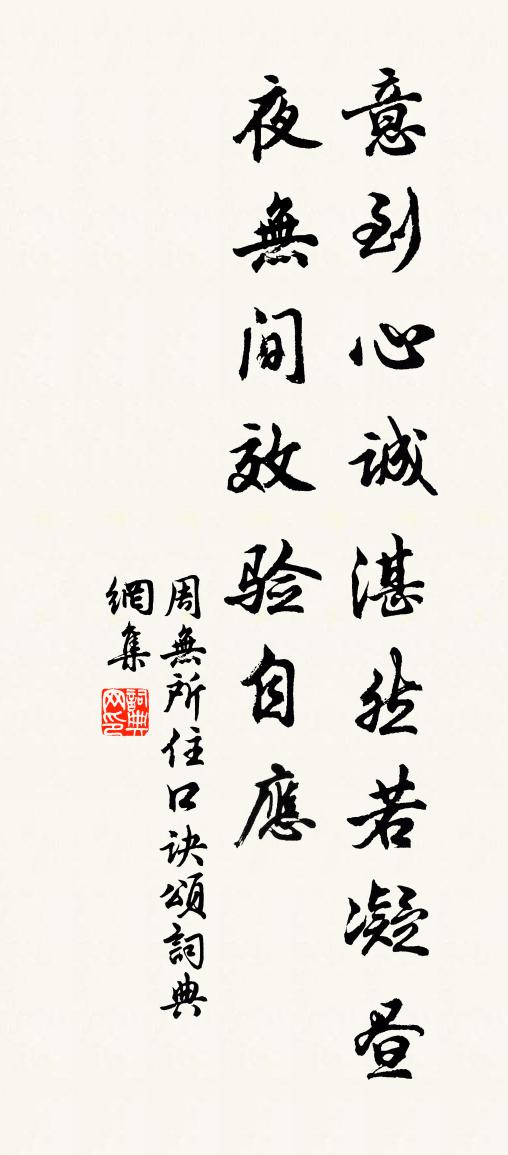 意到心诚湛然若凝昼
夜無间效验自應
周無所住口诀頌詞典
網集
詞典網印